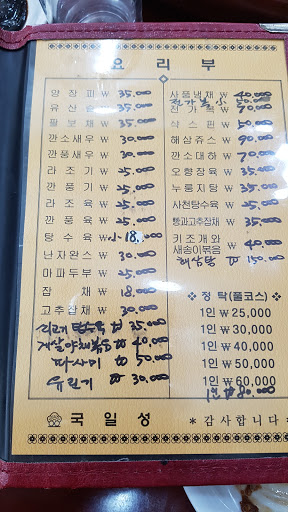 요리부
양장피 ₩ 35.000
유산슬 35.000
팔보채 ₩ 35.000
깐소새우 ₩ 30.000
깐풍새우 ₩ 30.000
라조기 ₩ 25.000
깐풍기 ₩ 25.000
라조육 ₩ 25.000
깐풍육 ₩ 25.000
탕수육 ₩ 小 18.000
난자완스 ₩ 30.000
마파두부 ₩ 25.000
잡채 ₩ 18.000
고추잡채 ₩ 30.000
탕수육 ₩ 35.000
계절야채볶음 ₩ 40.000
₩ 50.000
유린기 ₩ 30.000
사품냉채 ₩ 40.000
전가복 小 50.000
전가복 ₩ 70.000
삭스핀 ₩ 50.000
해삼쥬스 ₩ 90.000
깐소대하 ₩ 70.000
오향장육 ₩ 35.000
누룽지탕 ₩ 35.000
사천탕수육 ₩ 25.000
빵과고추잡채 ₩ 35.000
키조개와
새송이볶음 ₩ 40.000
해삼탕 ₩ 150.000
❖ 정탁(풀코스) ❖
1인 ₩ 25,000
1인 ₩ 30,000
1인 ₩ 40,000
1인 ₩ 50,000
1인 ₩ 60,000
1인 ₩ 80.000
국일성
*감사합니다*